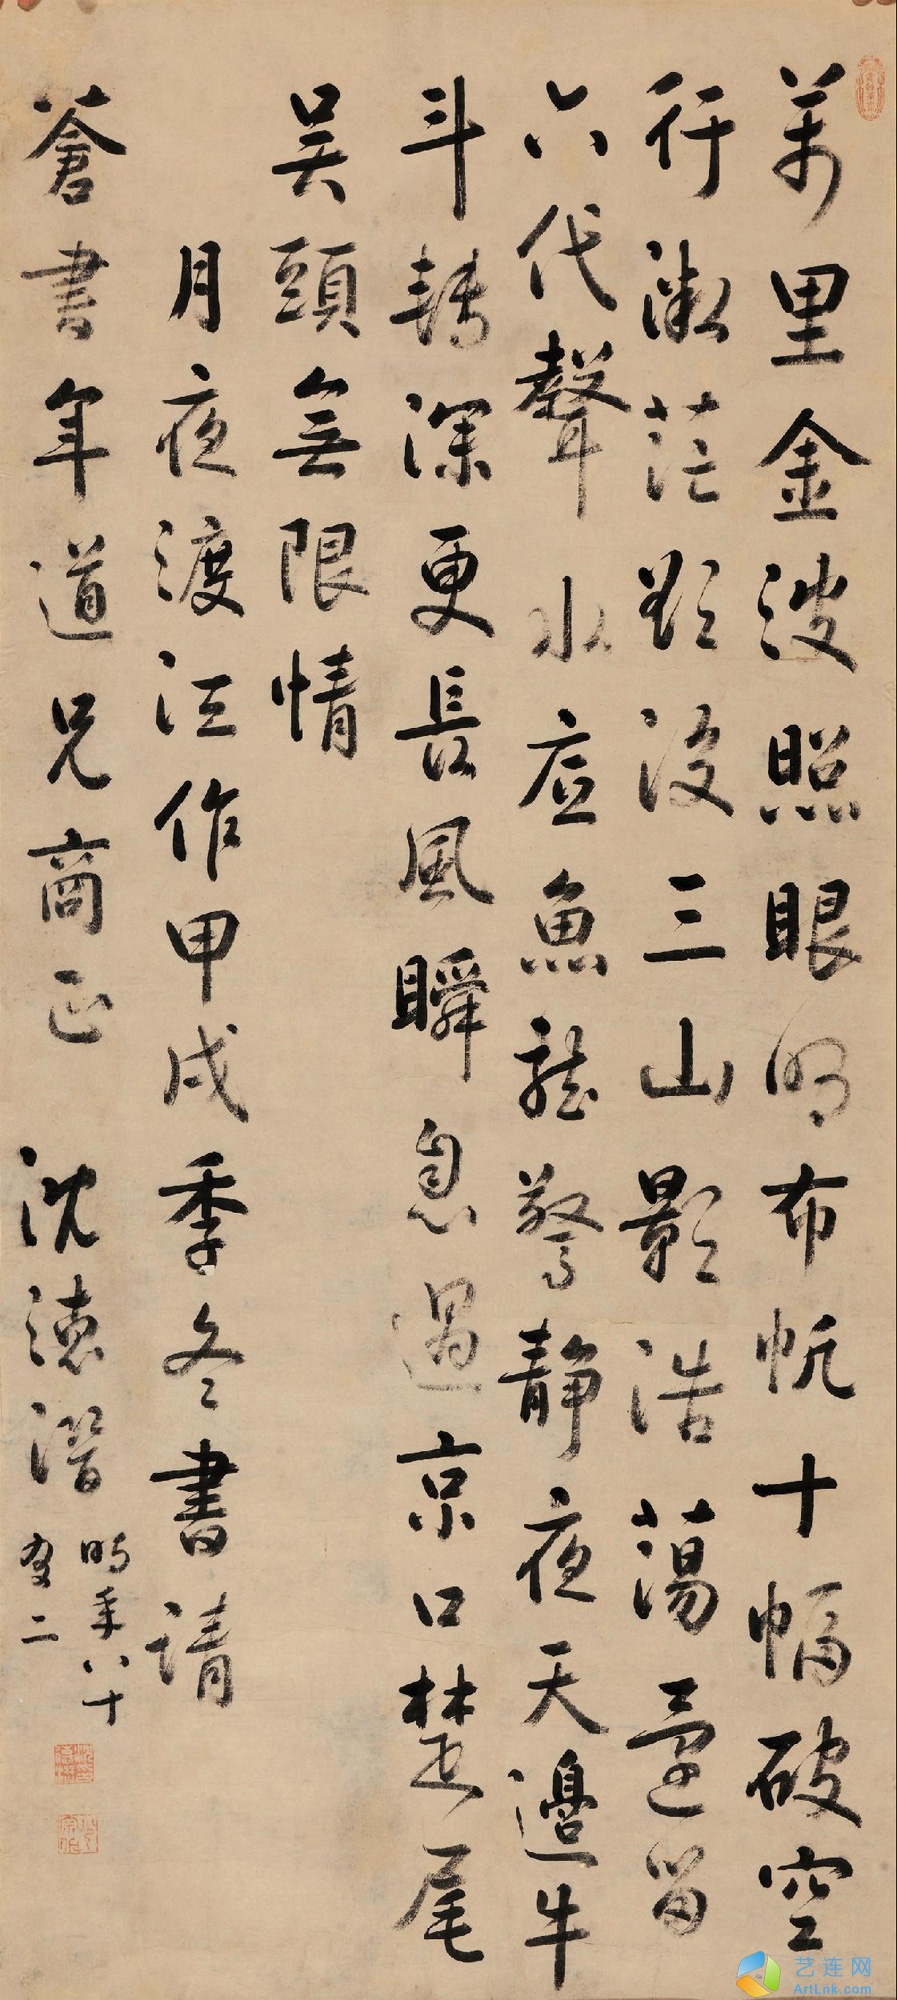 萬里金波照眼明布帆十幅破空
行微茫欲沒三山影浩蕩還留
六代聲水底魚龍驚靜夜天邊牛
斗轉深更長風瞬息過京口楚尾
吳頭無限情
月夜渡江作甲戌季冬書請
蒼書年道兄商正 沈德潛
時年八十
有二
艺连网
ArtLnk.com